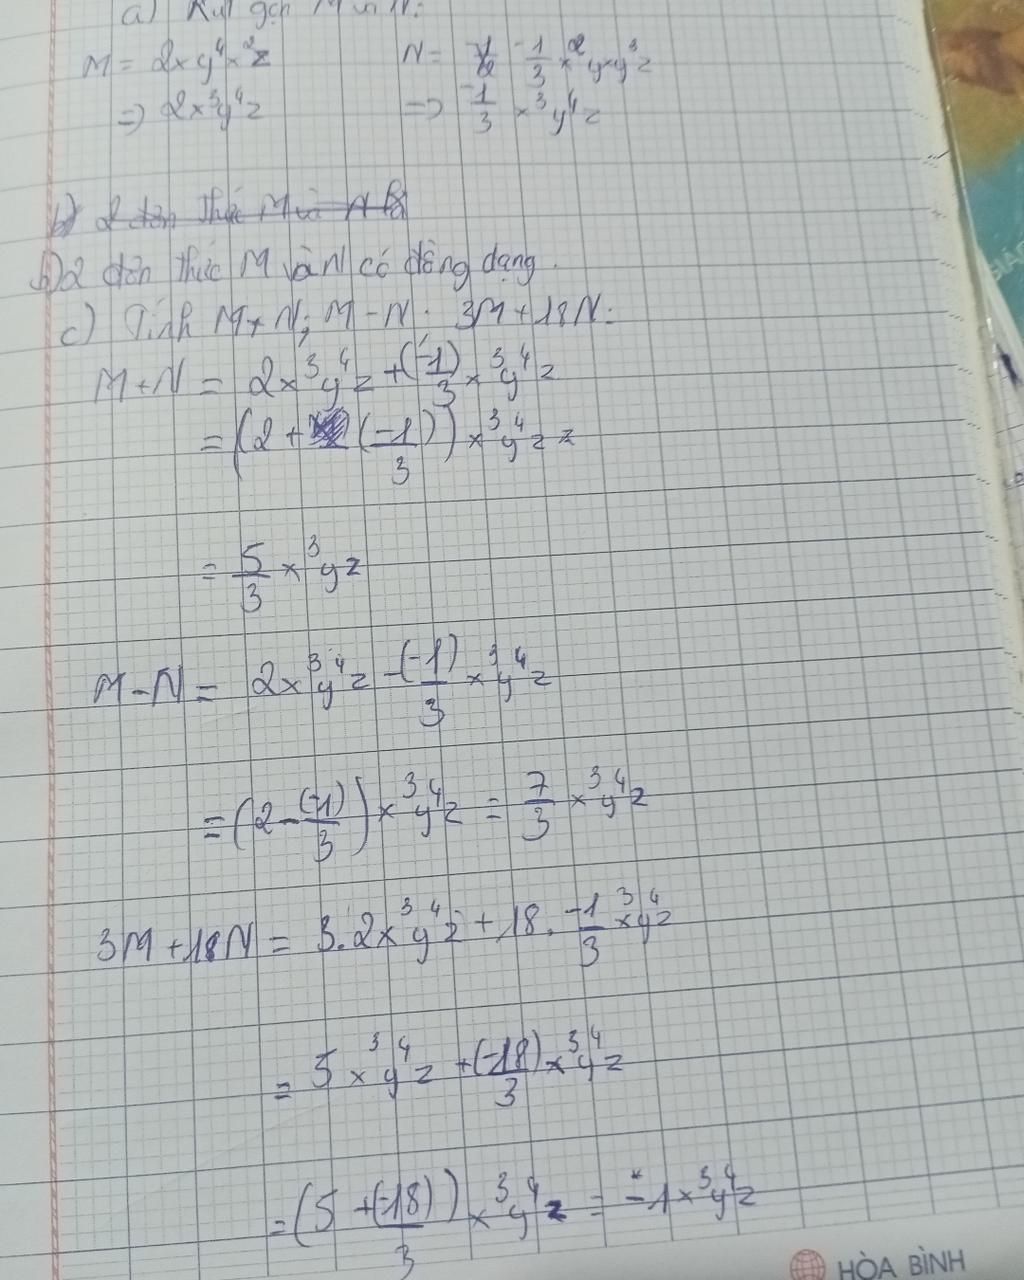 a) Rút gọn M và N:
M = 2xy⁴x²z N = -1/3 x²yxy³z
=> 2x³y⁴z => -1/3 x³y⁴z
b) 2 đơn thức M và N
b) 2 đơn thức M và N có đồng dạng.
c) Tính M+N; M-N; 3M+18N:
M+N = 2x³y⁴z + (-1)/3 x³y⁴z
= (2 + (-1)/3) x³y⁴z z
= 5/3 x³yz
M-N = 2x³y⁴z - (-1)/3 x³y⁴z
= (2 - (-1)/3) x³y⁴z = 7/3 x³y⁴z
3M+18N = 3.2x³y⁴z + 18. -1/3 x³y⁴z
= 5x³y⁴z + (-18)/3 x³y⁴z
= (5 + (-18)/3) x³y⁴z = -1x³y⁴z
HÒA BÌNH